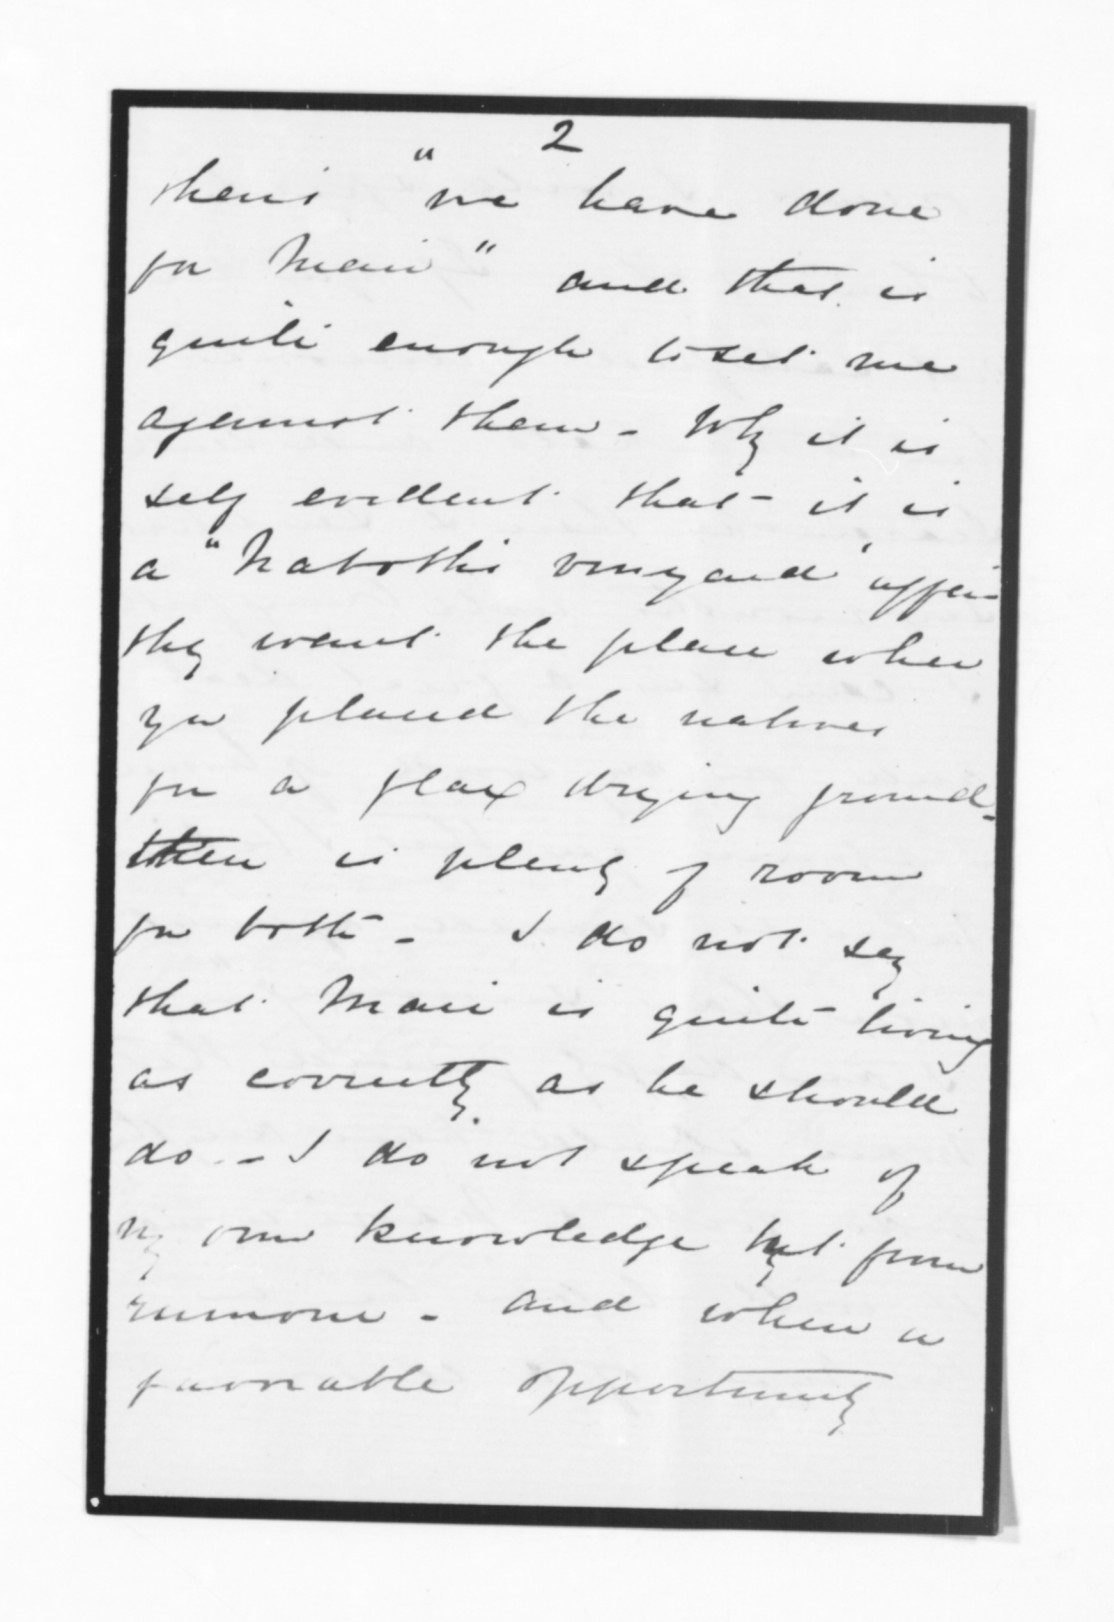 2
theirs "we have done
for Mair" and that is
quite enough to set me
against them - Why it is
self evident that it is
a "Naboth's vineyard" affair
they want the place where
you placed the natives
for a flax drying ground -
there is plenty of room
for both - I do not say
that Mair is quite living
as correctly as he should
do - I do not speak of
my own knowledge but from
rumour - and when a
favorable opportunity